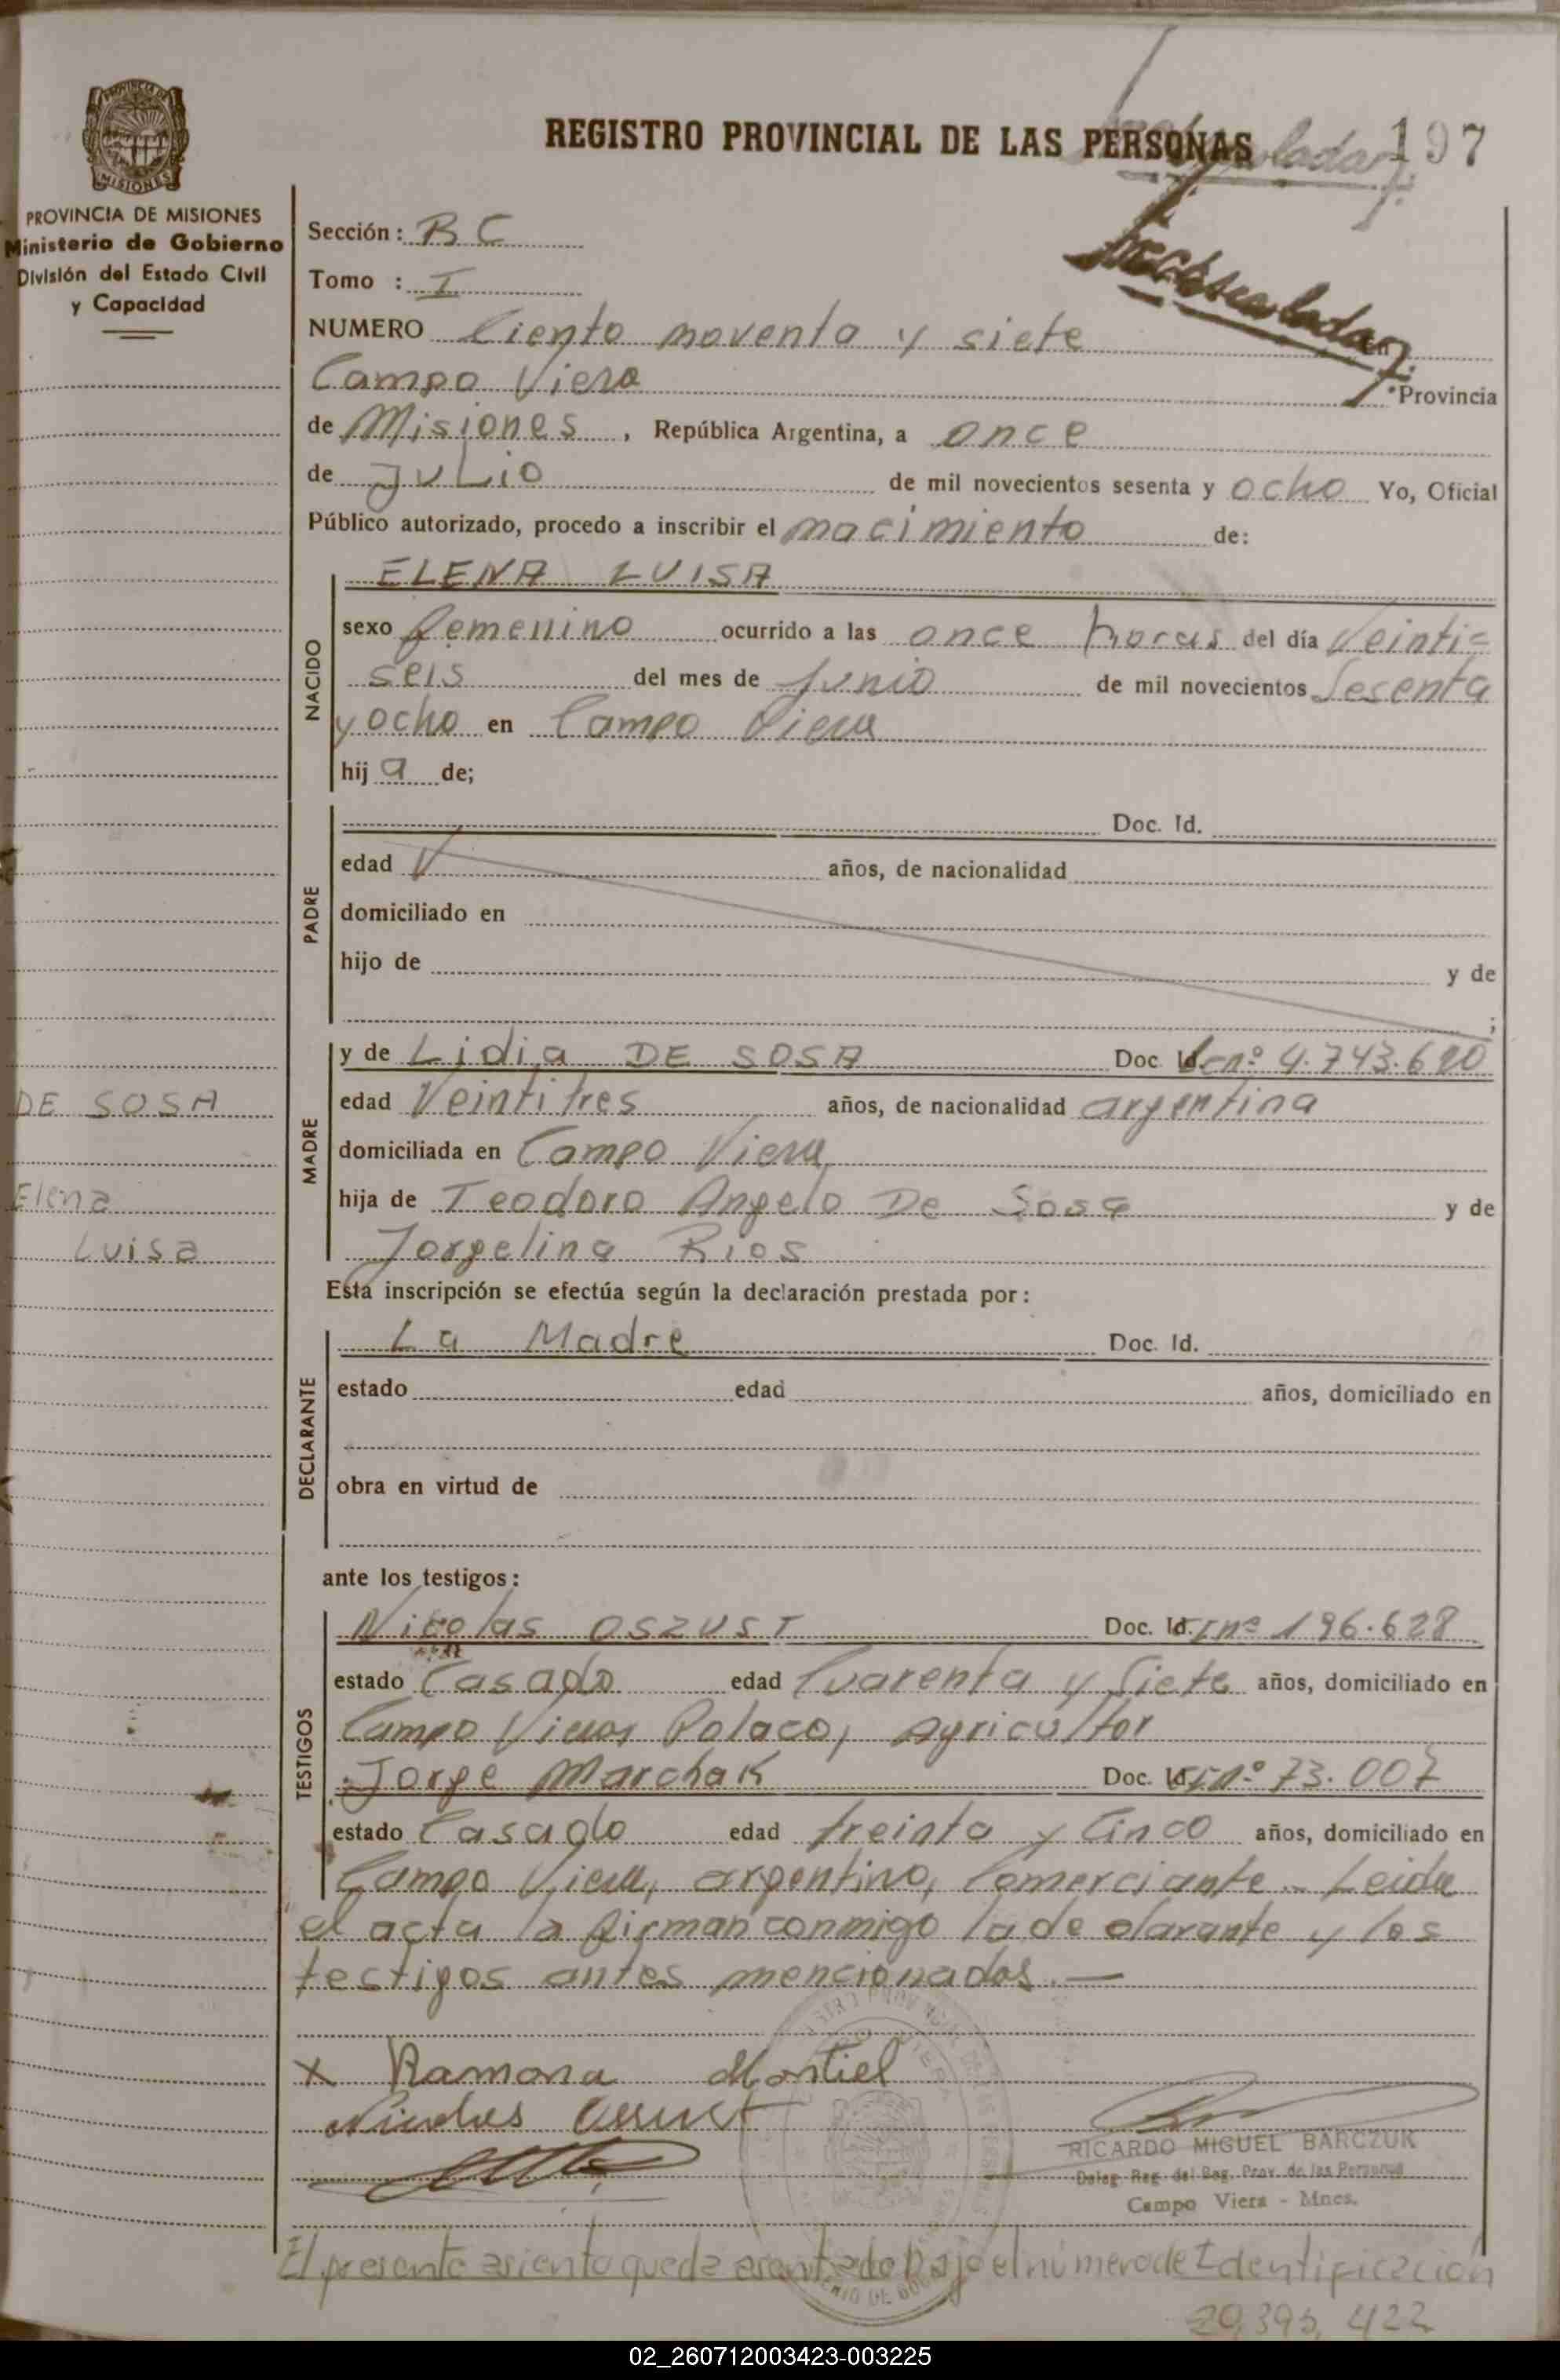 REGISTRO PROVINCIAL DE LAS PERSONAS
197
PROVINCIA DE MISIONES
Ministerio de Gobierno
División del Estado Civil
y Capacidad
Sección: BC
Tomo : I
NUMERO Ciento noventa y siete
Campo Viera Provincia
de Misiones, República Argentina, a once
de Julio de mil novecientos sesenta y ocho Yo, Oficial
Público autorizado, procedo a inscribir el nacimiento de:
NACIDO
ELENA LUISA
sexo femenino ocurrido a las once horas del día Veinti=
seis del mes de Junio de mil novecientos Sesenta
y ocho en Campo Viera
hij a de;
PADRE
Doc. Id.
edad años, de nacionalidad
domiciliado en
hijo de y de
;
MADRE
y de Lidia DE SOSA Doc. Id. nº 4.743.620
DE SOSA
edad Veintitres años, de nacionalidad argentina
domiciliada en Campo Viera
Elena
hija de Teodoro Angelo De Sosa y de
Luisa
Jorgelina Rios
Esta inscripción se efectúa según la declaración prestada por:
DECLARANTE
La Madre Doc. Id.
estado edad años, domiciliado en
obra en virtud de
ante los testigos:
TESTIGOS
Nicolas OSZUST Doc. Id. nº 196.628
estado Casado edad Cuarenta y Siete años, domiciliado en
Campo Viera, Polaco, Agricultor
Jorge Marchak Doc. Id. nº 73.007
estado Casado edad treinta y Cinco años, domiciliado en
Campo Viera, argentino, Comerciante - Leida
el acta la firman conmigo la de clarante y los
testigos antes mencionados.—
x Ramona Montiel
RICARDO MIGUEL BARCZUK
Deleg. Reg. del Reg. Prov. de las Personas
Campo Viera - Mnes.
El presente asiento queda asentado bajo el número de Identificación
20,395,422
02_260712003423-003225